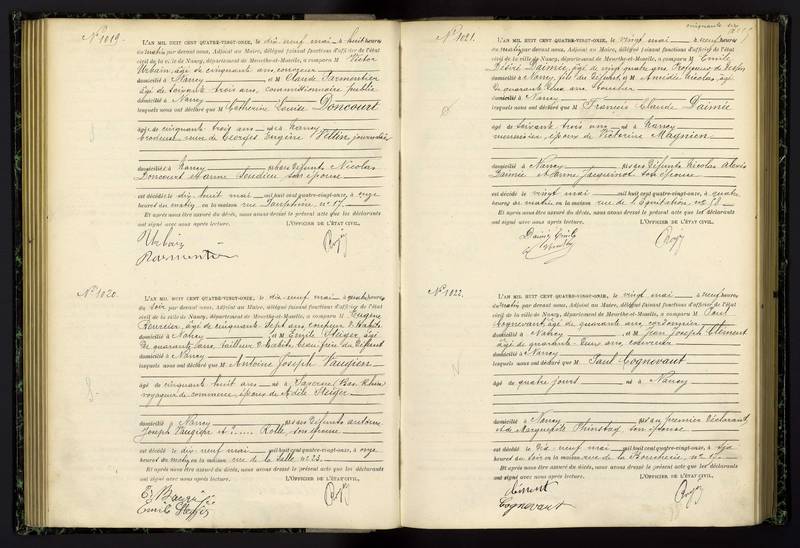 N° 1019.
L'AN MIL HUIT CENT QUATRE-VINGT-ONZE, le dix-neuf mai à huit heures
du matin par devant nous, Adjoint au Maire, délégué faisant fonctions d'officier de l'état
civil de la ville de Nancy, département de Meurthe-et-Moselle, a comparu M Victor
Urbain, âgé de cinquante ans,
domicilié à Nancy et M Claude Parmentier
âgé de soixante trois ans, commissionnaire public
domicilié à Nancy
lesquels nous ont déclaré que M Catherine Louise Doncourt
âgée de cinquante trois ans née à Nancy
brodeuse veuve de Georges Eugène Vettin, journalier
domiciliée à Nancy fille des défunts Nicolas
Doncourt et Anne son épouse
est décédée le dix-huit mai mil huit cent quatre-vingt-onze, à onze
heures du matin en la maison rue n° 17.
Et après nous être assuré du décès, nous avons dressé le présent acte que les déclarants
ont signé avec nous après lecture. L'OFFICIER DE L'ÉTAT CIVIL,
Urbain
Parmentier
N° 1020.
L'AN MIL HUIT CENT QUATRE-VINGT-ONZE, le dix-neuf mai à quatre heures
du soir par devant nous, Adjoint au Maire, délégué faisant fonctions d'officier de l'état
civil de la ville de Nancy, département de Meurthe-et-Moselle, a comparu M Eugène
âgé de cinquante sept ans, coupeur d'habits
domicilié à Nancy et M Emile Steiger, âgé
de quarante ans, tailleur d'habits, beau frère du défunt
domicilié à Nancy
lesquels nous ont déclaré que M Antoine Joseph Vaugien
âgé de cinquante huit ans né à Saverne (Bas Rhin)
voyageur de commerce, époux de Adèle Steiger
domicilié à Nancy fils des défunts Antoine
Joseph Vaugien et ...... Rolle, son épouse
est décédé le dix-neuf mai mil huit cent quatre-vingt-onze, à onze
heures du matin en la maison rue de la n° 23.
Et après nous être assuré du décès, nous avons dressé le présent acte que les déclarants
ont signé avec nous après lecture. L'OFFICIER DE L'ÉTAT CIVIL,
N° 1021.
L'AN MIL HUIT CENT QUATRE-VINGT-ONZE, le vingt mai à neuf heures
du matin par devant nous, Adjoint au Maire, délégué faisant fonctions d'officier de l'état
civil de la ville de Nancy, département de Meurthe-et-Moselle, a comparu M Emile
Désiré Daimée, âgé de vingt quatre ans, Professeur de dessin
domicilié à Nancy, fils du défunt et M Amédée Nicolas, âgé
de quarante deux ans
domicilié à Nancy
lesquels nous ont déclaré que M François Claude Daimée
âgé de soixante trois ans né à Nancy
menuisier, époux de Victorine Magnien
domicilié à Nancy fils des défunts Nicolas Alexis
Daimée et Anne Jacquinot son épouse
est décédé le vingt mai mil huit cent quatre-vingt-onze, à quatre
heures du matin en la maison rue de l'Equitation, n° 58
Et après nous être assuré du décès, nous avons dressé le présent acte que les déclarants
ont signé avec nous après lecture. L'OFFICIER DE L'ÉTAT CIVIL,
N° 1022.
L'AN MIL HUIT CENT QUATRE-VINGT-ONZE, le vingt mai à neuf heures
du matin par devant nous, Adjoint au Maire, délégué faisant fonctions d'officier de l'état
civil de la ville de Nancy, département de Meurthe-et-Moselle, a comparu M Paul
Cognevaut, âgé de quarante ans, cordonnier
domicilié à Nancy et M Jean Joseph Clément
âgé de quarante deux ans, couvreur
domicilié à Nancy
lesquels nous ont déclaré que M Paul Cognevaut
âgé de quatre jours né à Nancy
domicilié à Nancy fils du premier déclarant
et de Marguerite son épouse
est décédé le dix-neuf mai mil huit cent quatre-vingt-onze, à six
heures du soir en la maison rue de la
Et après nous être assuré du décès, nous avons dressé le présent acte que les déclarants
ont signé avec nous après lecture. L'OFFICIER DE L'ÉTAT CIVIL,
Clément
Cognevaut